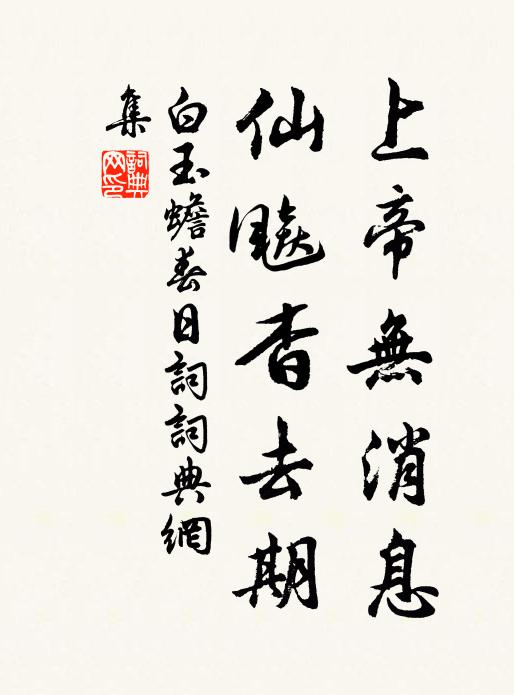 上帝無消息
仙飈杳去期
白玉蟾春日詞詞典網
集
詞典
网印